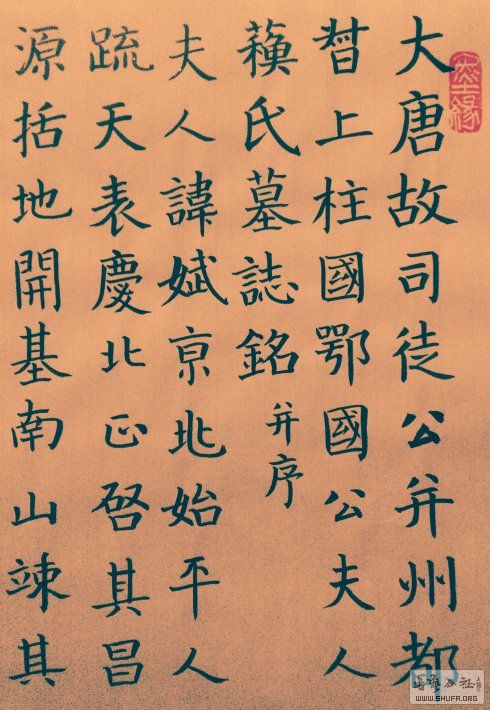 大唐故司徒公并州都
督上柱國鄂國公夫人
蘇氏墓誌銘 并序
夫人諱娬京兆始平人
疏天表慶北正啓其昌
源括地開基南山竦其
WWW.SHUFA.ORG